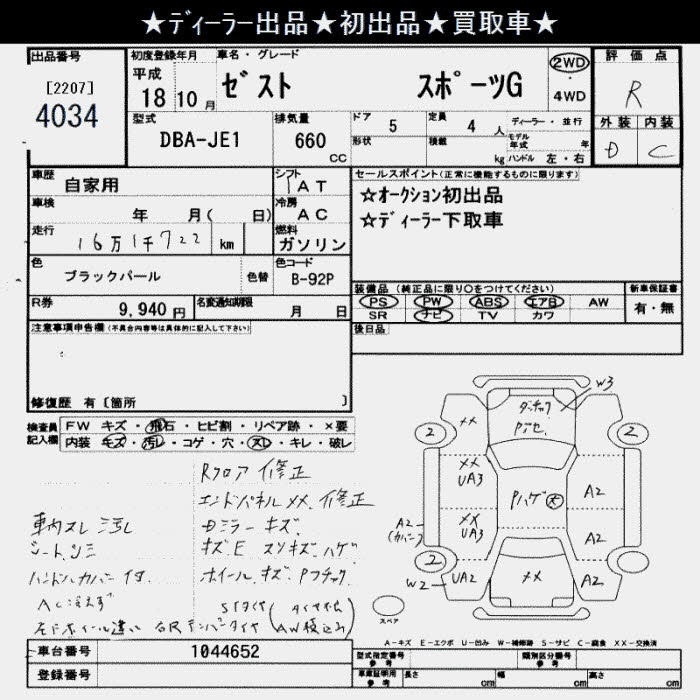 ★ディーラー出品★初出品★買取車★
出品番号 [2207] 4034
初度登録年月 平成 18 10 月
車名・グレード ゼスト スポーツG
2WD 4WD
評価点 R
外装 D 内装 C
型式 DBA-JE1
排気量 660 CC
ドア 5 定員 4 人
形状 積載 kg
ディーラー・並行
モデル年式 年
ハンドル 左・右
車歴 自家用
シフト IAT
車検 年 月( 日)
冷房 AC
走行 16万1千722 km
燃料 ガソリン
色 ブラックパール 色替
色コード B-92P
R券 9,940 円
名変通知期限 月 日
セールスポイント(正常に機能するものに限ります)
☆オークション初出品
☆ディーラー下取車
装備品(純正品に限り○をつけてください)
PS PW ABS エアB AW
SR ナビ TV カワ
新車保証書 有・無
後日品
注意事項申告欄(不具合内容等は具体的に記入して下さい)
修復歴 有〔箇所 〕
検査員記入欄
FW キズ・飛石・ヒビ割・リペア跡・×要
内装 キズ・汚レ・コゲ・穴・スレ・キレ・破レ
Rフロア 修正
エンドパネルXX、修正
車内スレ 汚レ
シートシミ
キズ.E スリキズ.ハゲ
ハンドルカバー付
ホイール キズ
AC冷えず
左F ホイール違い
W3
XX
2 2
XX UA3
Pハゲ
A2
XX UA3
A2
A2 (カバー)
2 2
W2 UA2 XX A2
スペア
A-キズ E-エクボ U-凹み W-補修跡 S-サビ C-腐食 XX-交換済
車台番号 1044652
登録番号
型式指定番号 参考
類別区分番号 参考
車庫証明用 参考 長さ cm 幅 cm 高さ cm